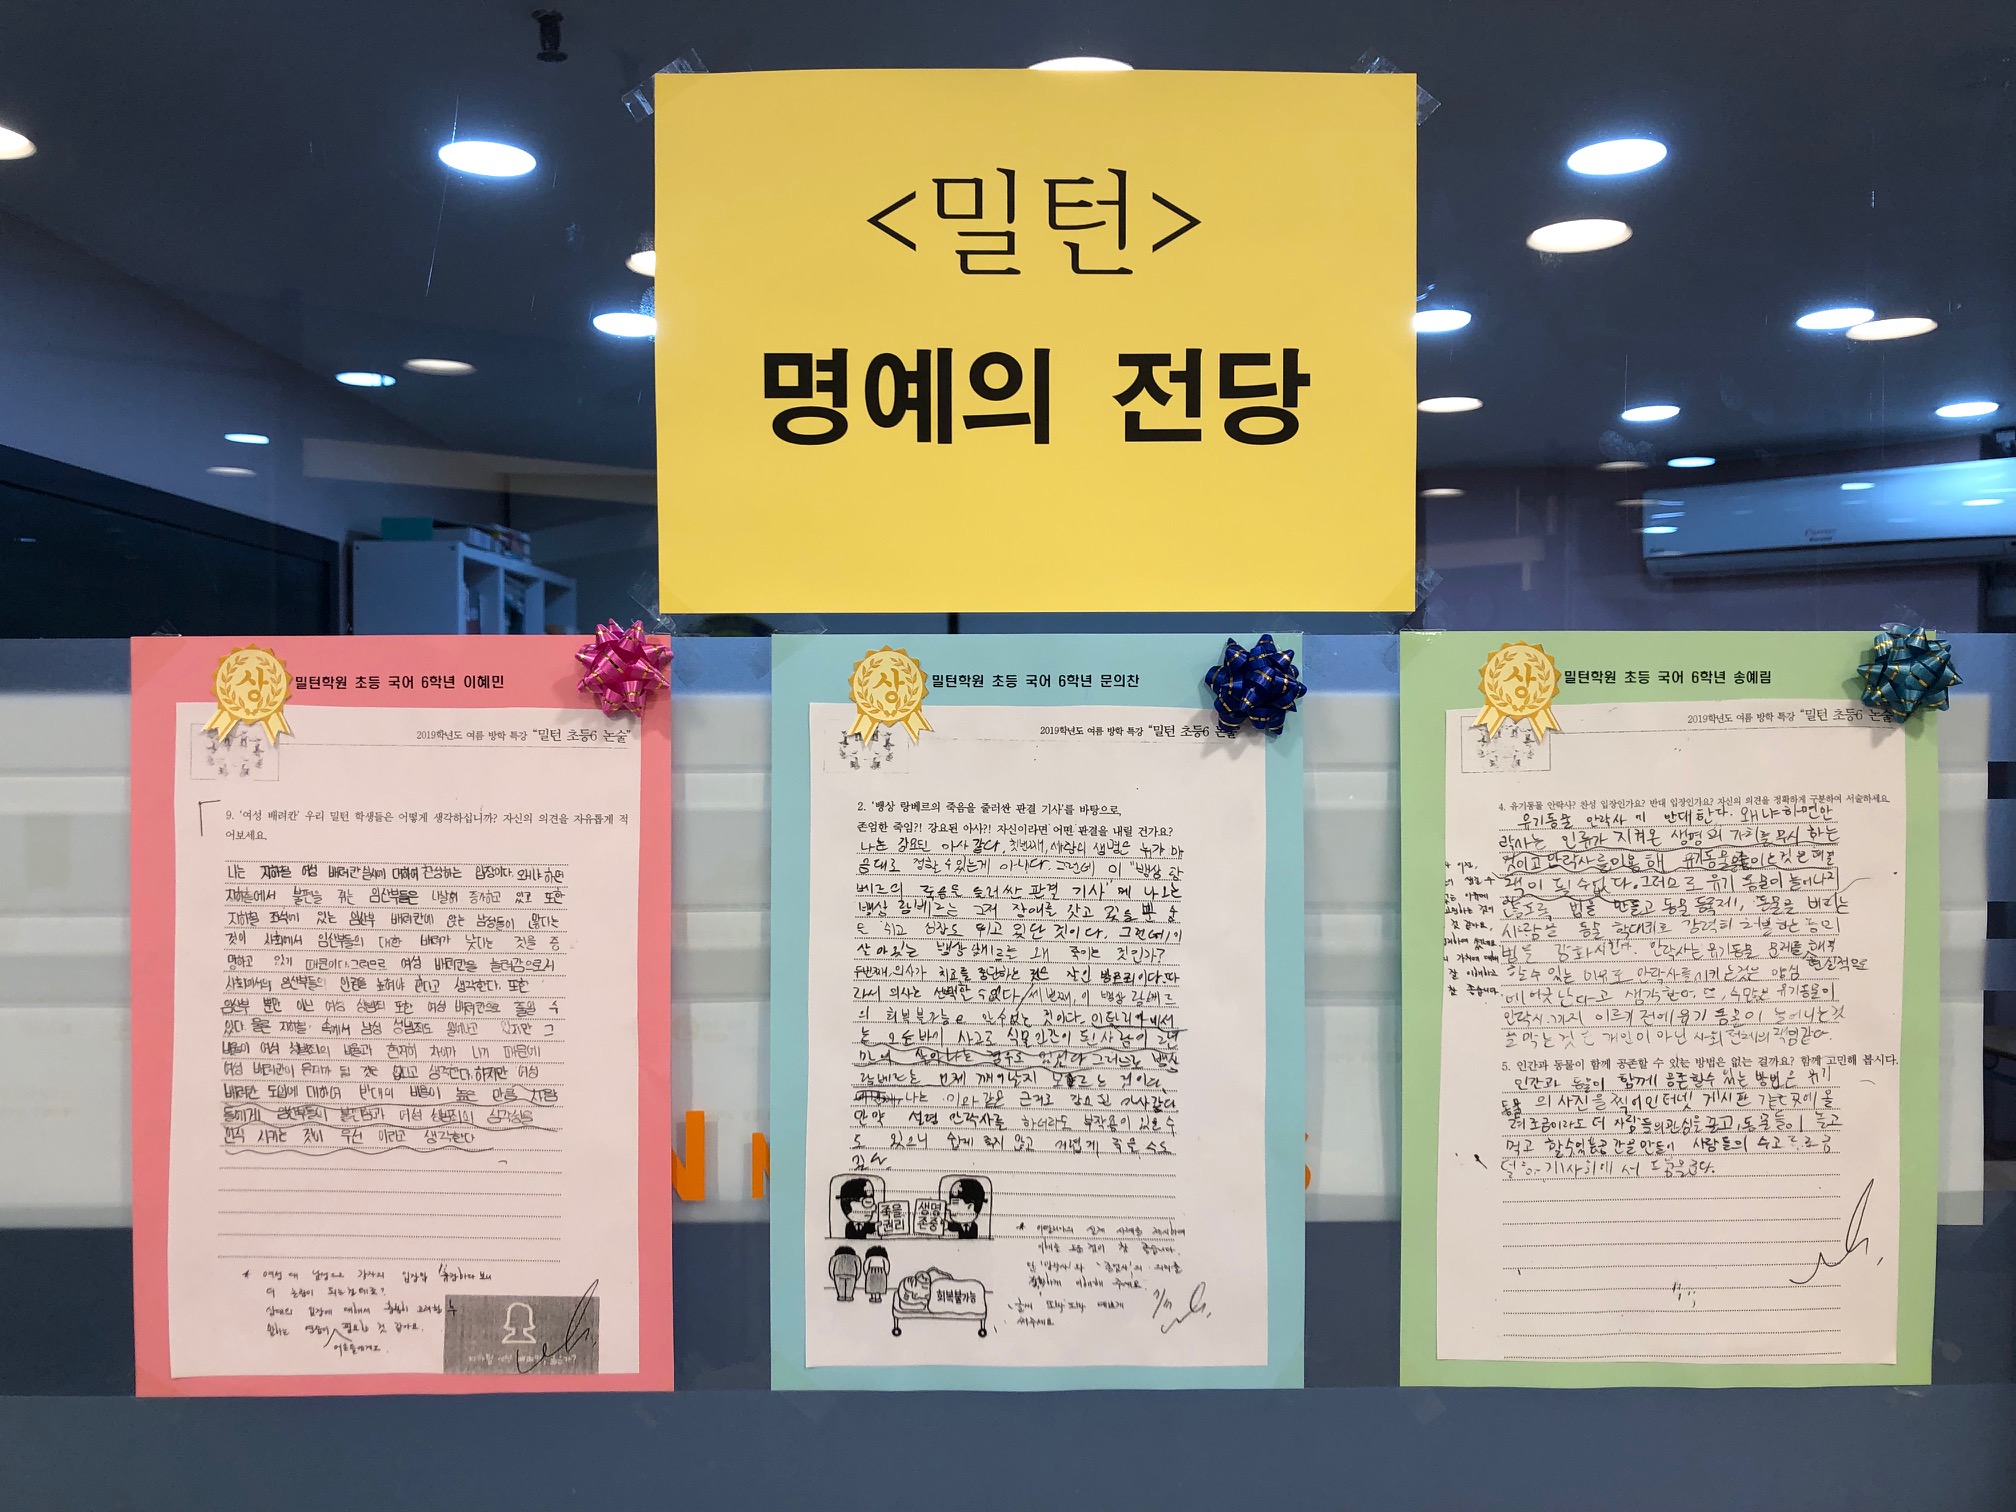 <밀턴>
명예의 전당
상
밀턴학원 초등 국어 6학년 이혜민
2019학년도 여름 방학 특강 "밀턴 초등6 논술"
9. '여성 배려칸' 우리 밀턴 학생들은 어떻게 생각하십니까? 자신의 의견을 자유롭게 적
어보세요.
나는 지하철 여성 배려칸 실시에 대하여 찬성하는 입장이다. 왜냐하면
지하철에서 불편을 겪는 임산부들은 나날이 증가하고 있고 또한
지하철 좌석에 있는 임산부 배려칸에 앉는 남성들이 많다는
것이 사회에서 임산부들의 대한 배려가 낮다는 것을 증
명하고 있기 때문이다. 그러므로 여성 배려칸을 늘려감으로서
사회에서의 임산부들의 인권을 높여야 한다고 생각한다. 또한
임산부 뿐만 아닌 여성 성범죄 또한 여성 배려칸으로 줄일 수
있다. 물론 지하철 속에서 남성 성범죄도 일어나고 있지만 그
비율이 여성 성범죄의 비율과 현저히 차이가 나기 때문에
여성 배려칸이 유지가 될 것은 없다고 생각한다. 하지만 여성
배려칸 도입에 대하여 반대의 비율이 높은 만큼 사람
들에게 임산부들의 불편함과 여성 성범죄의 심각성을
인식 시키는 것이 우선 이라고 생각한다
* 여성 대 남성으로 각자의 입장만 주장하다 보니
더 논란이 되는 건데요?
상대의 입장에 대해서 충분히 고려할 수
원하는 연습이 필요한 것 같아요.
어른들에게도
상
밀턴학원 초등 국어 6학년 문의찬
2019학년도 여름 방학 특강 "밀턴 초등6 논술
2. '뱅상 랑베르의 죽음을 줄러싼 판결 기사'를 바탕으로,
존엄한 죽임?! 강요된 아사?! 자신이라면 어떤 판결을 내릴 건가요?
나는 강요된 아사 같다. 첫번째, 사람의 생명은 누가 마
음대로 정할 수 있는게 아니다. 그런데 이 "뱅상 랑
베르의 죽음을 둘러싼 판결 기사"에 나오는
뱅상 랑베르는 그저 장애를 갖고 있을 뿐 숨
은 쉬고 심장도 뛰고 있단 것이다. 그런데 이
살아있는 뱅상 랑베르는 왜 죽이는 것인가?
두번째, 의사가 치료를 중단하는 것은 살인 범죄이다. 따
라서 의사는 선택할 수 없다. 세번째, 이 뱅상 랑베르
의 회복불가능은 알 수 없는 것이다. 이탈리아에서
는 오토바이 사고로 식물인간이 된 사람이 2년
만에 살아나는 경우도 있었다 그러므로 뱅상
랑베르는 언제 깨어날지 모르는 것이다.
나는 이와 같은 근거로 강요된 아사같다
만약 설령 안락사를 하더라도 부작용이 있을 수
도 있으니 쉽게 죽지 않고 괴롭게 죽을 수도
있다.
죽을 권리
생명 존중
회복불가능
* 이탈리아의 실제 사례를 제시하며
이해를 도운 점이 참 좋습니다.
또 '안락사'와 '존엄사'의 의미를
정확하게 이해해 주세요.
글씨 또박또박 예쁘게
써주세요
상
밀턴학원 초등 국어 6학년 송예림
2019학년도 여름 방학 특강 "밀턴 초등6 논술
4. 유기동물 안락사? 찬성 입장인가요? 반대 입장인가요? 자신의 의견을 정확하게 구분하여 서술하세요
유기동물 안락사 에 반대한다. 왜냐하면 안
락사는 인류가 지켜온 생명의 가치를 무시 하는
것이고 안락사를 이용해 유기동물을 줄이는 것은 해결
책이 될 수 없다. 그러므로 유기 동물이 늘어나지
않도록 법을 만들고 동물 등록제, 동물을 버리는
사람은 동물 학대죄로 강력히 처벌하는 등의
법을 강화시킨다. 안락사는 유기동물 문제를 해결
할수 있는 이유로 안락사를 시키는 것은 양심 현실적으로
에 어긋난다고 생각한다. 또, 수많은 유기동물이
안락사 까지 이르기 전에 유기 동물이 늘어나는 것
을 막는 것은 개인이 아닌 사회 전체의 책임같다.
5. 인간과 동물이 함께 공존할 수 있는 방법은 없는 걸까요? 함께 고민해 봅시다.
인간과 동물이 함께 공존할수 있는 방법은 유기
동물 의 사진을 찍어 인터넷 게시판 같은 곳에 올
려 조금이라도 더 사람들의 관심을 끌고, 동물들이 놀고
먹고 할수 있을 공간을 만들어 사람들의